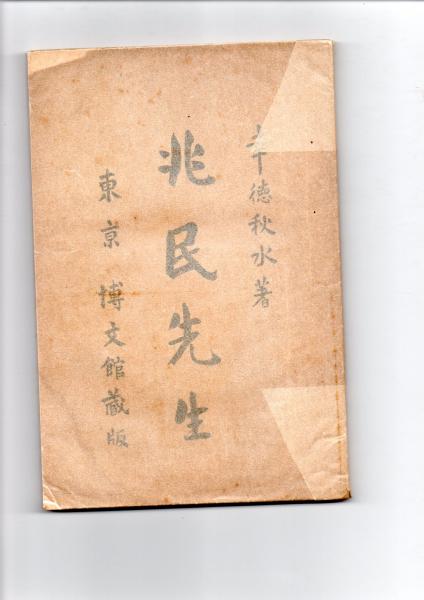 幸徳秋水著
兆民先生
東京 博文館蔵版